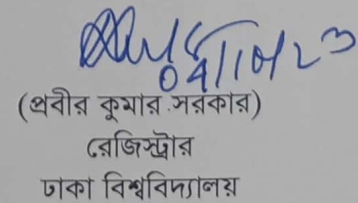 (প্রবীর কুমার সরকার)
রেজিস্ট্রার
ঢাকা বিশ্ববিদ্যালয়